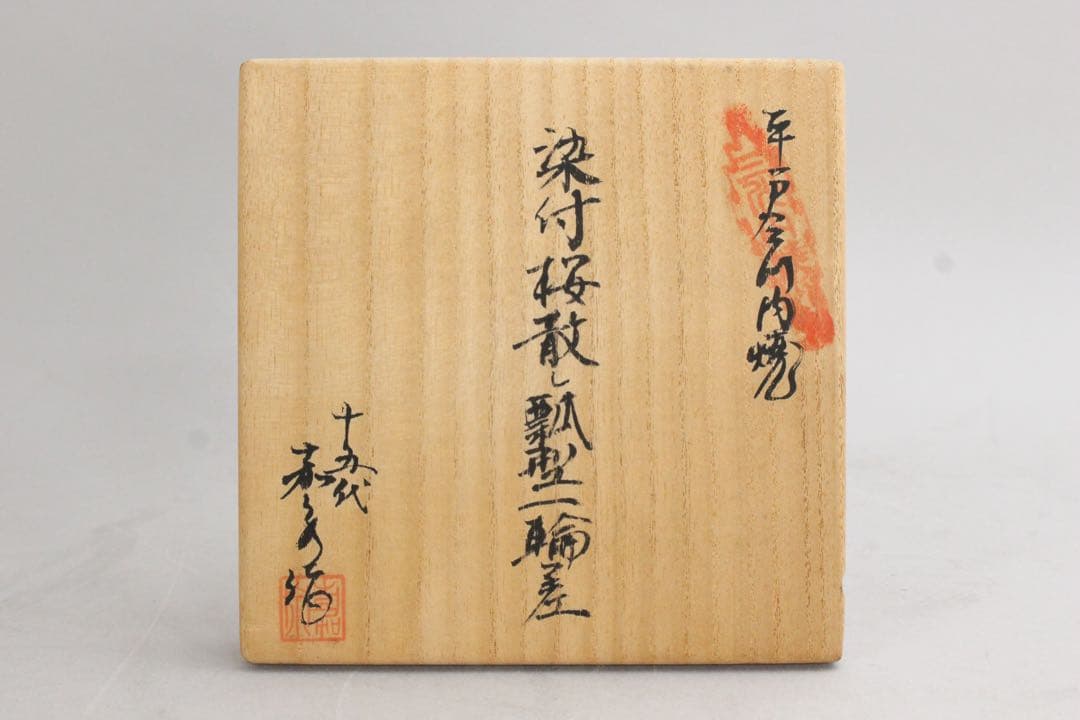 平戸三川内焼
染付桜散し瓢型一輪差
十五代